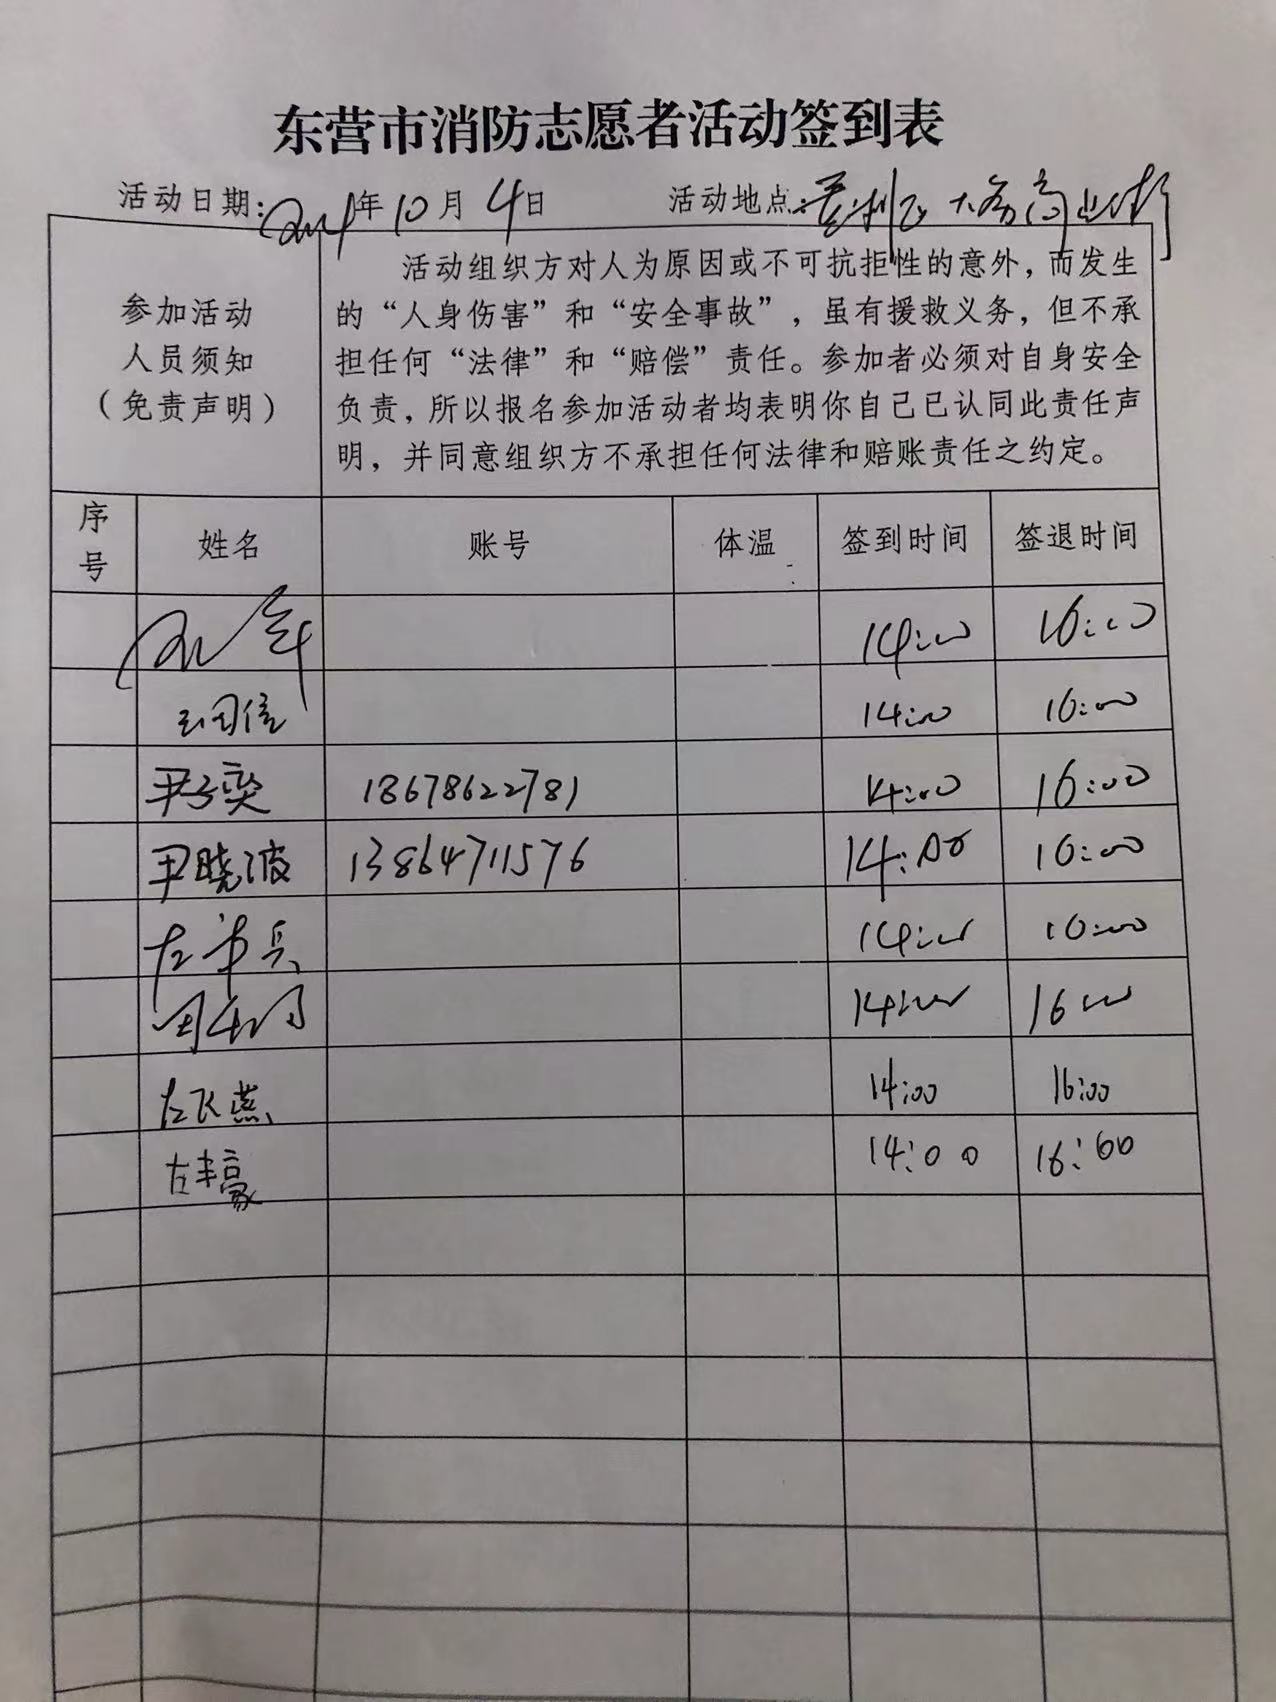 东营市消防志愿者活动签到表
活动日期: 年10月4日 活动地点:
参加活动
人员须知
（免责声明）
活动组织方对人为原因或不可抗拒性的意外，而发生
的“人身伤害”和“安全事故”，虽有援救义务，但不承
担任何“法律”和“赔偿”责任。参加者必须对自身安全
负责，所以报名参加活动者均表明你自己已认同此责任声
明，并同意组织方不承担任何法律和赔账责任之约定。
序号 姓名 账号 体温 签到时间 签退时间
14:00 16:00
14:00 16:00
尹子奕 18678622781 14:00 16:00
尹晓波 13864711576 14:00 16:00
14:00 16:00
14:00 16:00
左飞燕 14:00 16:00
左丰豪 14:00 16:00